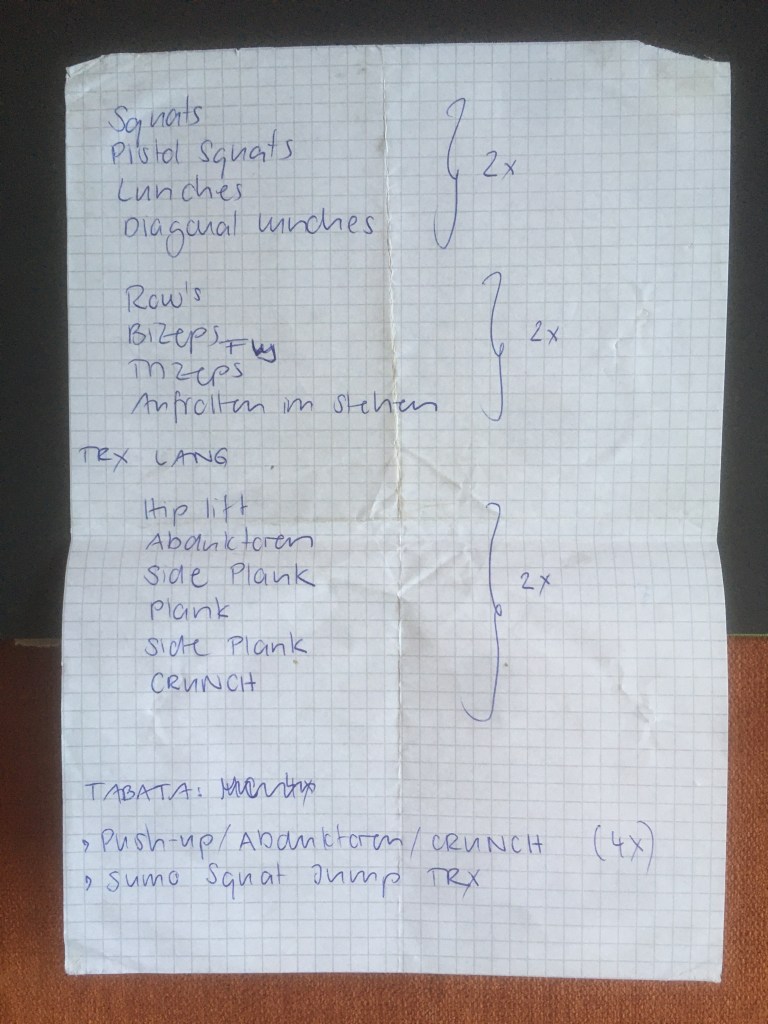 Squats
Pistol Squats
Lunches
2x
Diagonal lunches
Row's
Bizeps Fly
2x
Trizeps
Aufrollen im stehen
TRX LANG
Hip lift
Abduktoren
Side Plank
2x
Plank
Side Plank
CRUNCH
TABATA:
Push-up/Abduktoren/CRUNCH (4x)
Sumo Squat Jump TRX